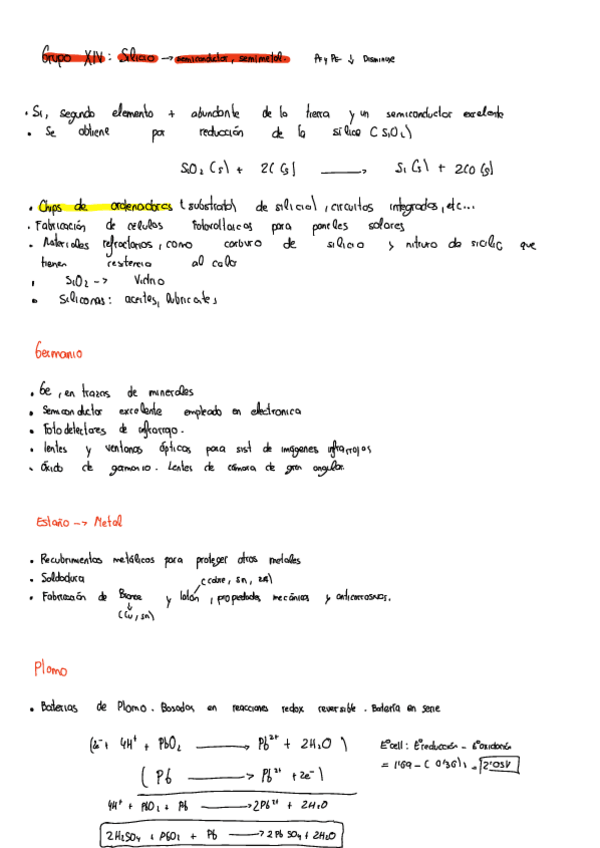 Grupo XIV: Silicio → semiconductor, semimetal. Pf y PE ↓ Disminuye
• Si, segundo elemento + abundante de la tierra y un semiconductor excelente
• Se obtiene por reducción de la sílice (SiO₂)
SiO₂ (s) + 2C (s) → Si (s) + 2CO (g)
• Chips de ordenadores (substrato) de silicio), circuitos integrados, etc...
• Fabricación de celulas fotovoltaicas para paneles solares
• Materiales refractarios, como carburo de silicio y nitruro de silicio que
tienen resistencia al calor
• SiO₂ --> Vidrio
• Siliconas: aceites, lubricantes
Germanio
• Ge, en trazas de minerales
• Semiconductor excelente empleado en electronica
• Fotodetectores de infrarrojo.
• lentes y ventanas ópticas para sist de imágenes infrarrojas
• Óxido de germanio. Lentes de cámara de gran angular.
Estaño --> Metal
• Recubrimentos metálicos para proteger otros metales
• Soldadura
(cobre, sn, zn)
• Fabricación de Bronce y latón, propiedades mecánicas y anticorrosivas.
↓
(Cu, Sn)
Plomo
• Baterias de Plomo. Basadas en reacciones redox reversible. Batería en serie
(2e⁻ + 4H⁺ + PbO₂ → Pb²⁺ + 2H₂O) E°cell: E°reducción - E°oxidación
(Pb → Pb²⁺ + 2e⁻) = 1'69 - (-0'36) = 2'05V
4H⁺ + PbO₂ + Pb → 2Pb²⁺ + 2H₂O
2H₂SO₄ + PbO₂ + Pb → 2PbSO₄ + 2H₂O